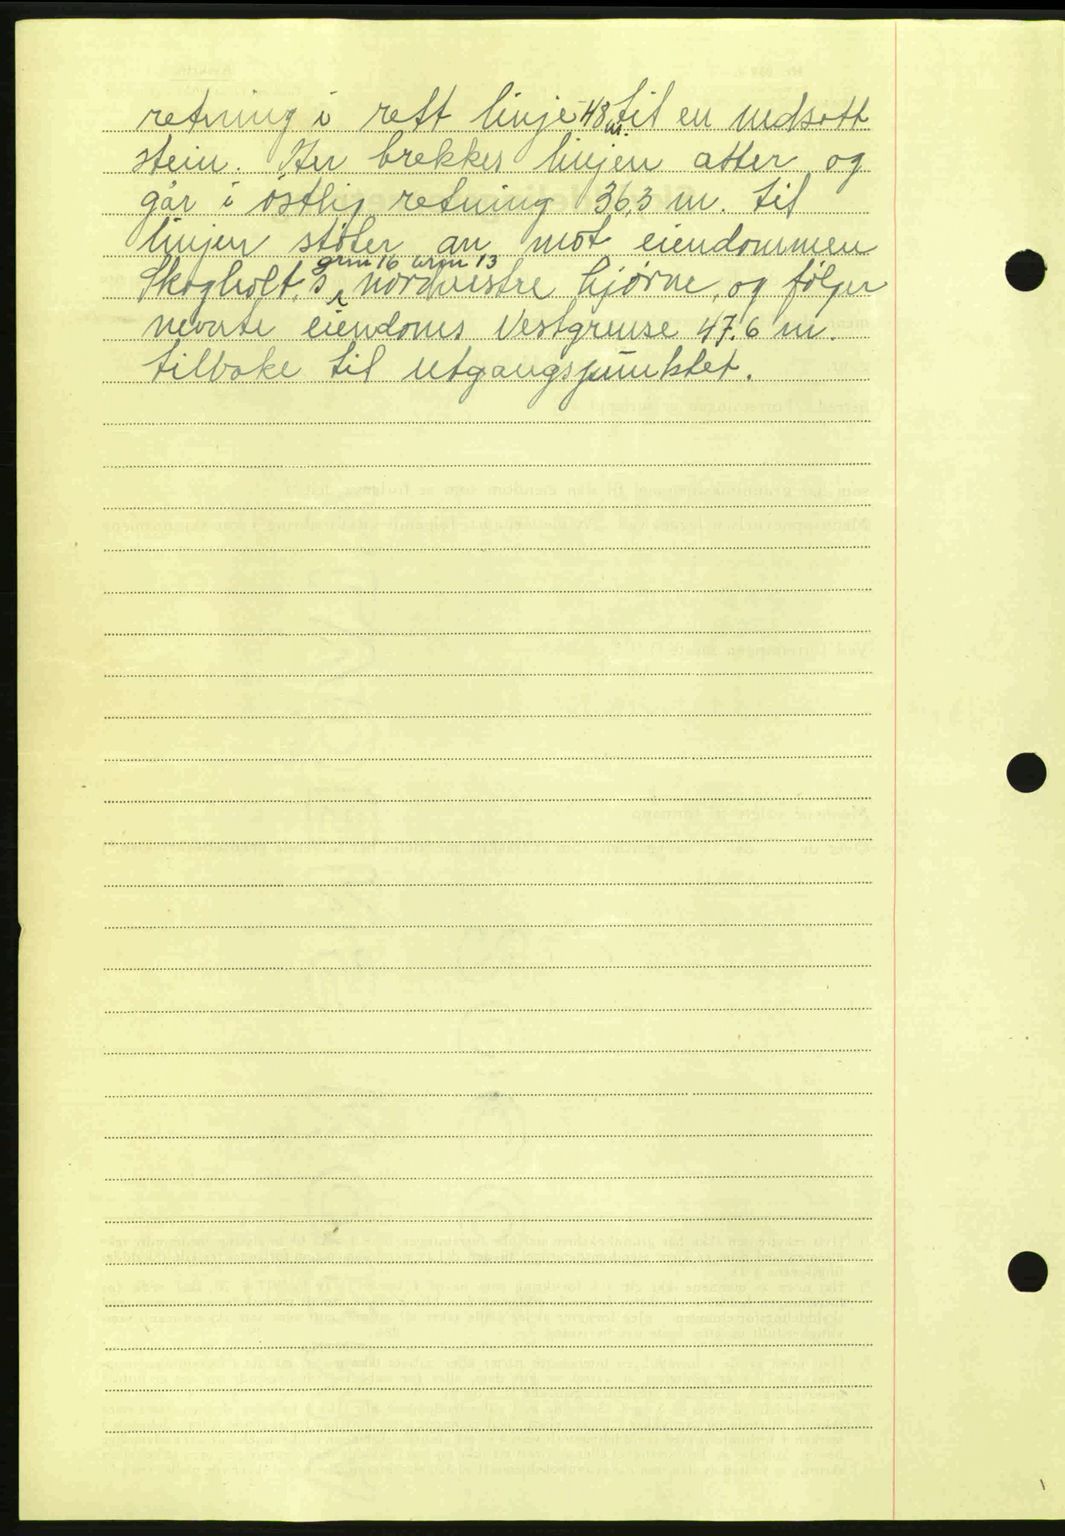 retning i rett linje 48 m. til en nedsatt
stein. Her brekkes linjen atter og
går i østlig retning 36,3 m. til
linjen støter an mot eiendommen
grnr 16 brnr 13
Skogholt,s nordvestre hjørne, og følger
nevnte eiendoms Vestgrense 47.6 m.
tilbake til utgangspunktet.